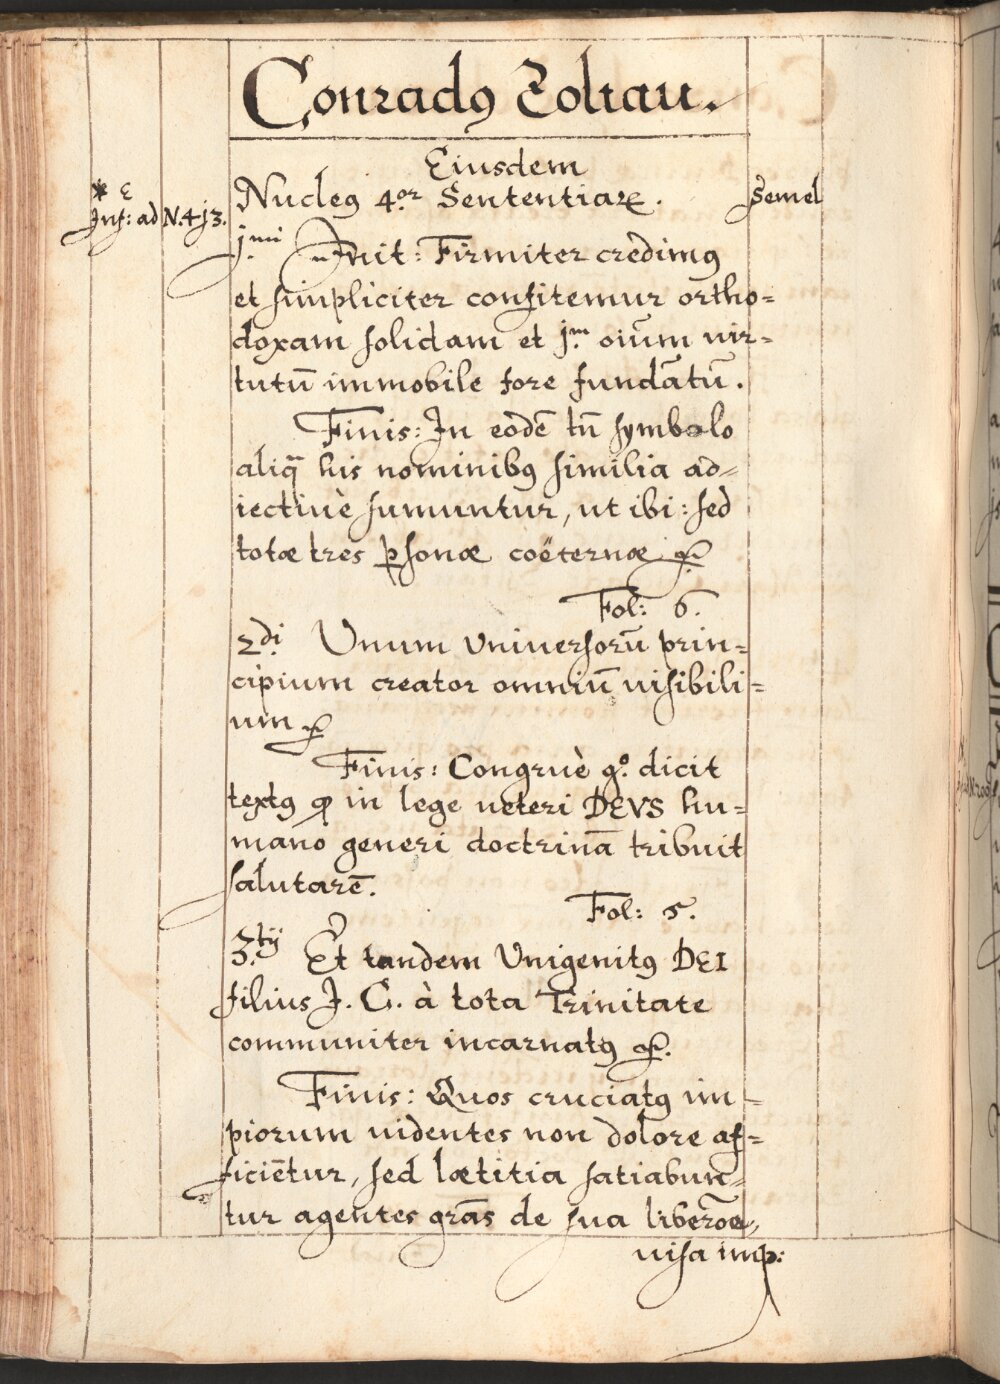 Conradꝰ Zoltau.
Eiusdem
Nucleꝰ 4.or Sententiaꝝ. Semel
* E
Inf: ad N.4j3.
j.mi Init: Firmiter credimꝰ
et simpliciter confitemur ortho=
doxam solidam et j.m oiūm uir=
tutū immobile fore fundātū.
Finis: In eodē tn̄ symbolo
aliq̄ his nominibꝰ similia ad=
iectiuè sumuntur, ut ibi: sed
totæ tres ꝑsonæ coëternæ &.
Fol: 6.
2.di Unum universorū prin=
cipium creator omniū uisibili=
um &
Finis: Congruè g.o dicit
textꝰ ꝙ in lege ueteri DEVS hu=
mano generi doctrinā tribuit
salutarē.
Fol: 5.
3.tij Et tandem Unigenitꝰ DEI
filius J. C. à tota Trinitate
communiter incarnatꝰ &.
Finis: Quos cruciatꝰ im-
piorum uidentes non dolore af=
ficiētur, sed lætitia satiabun=
tur agentes grās de sua liberōe,
uisa imp: